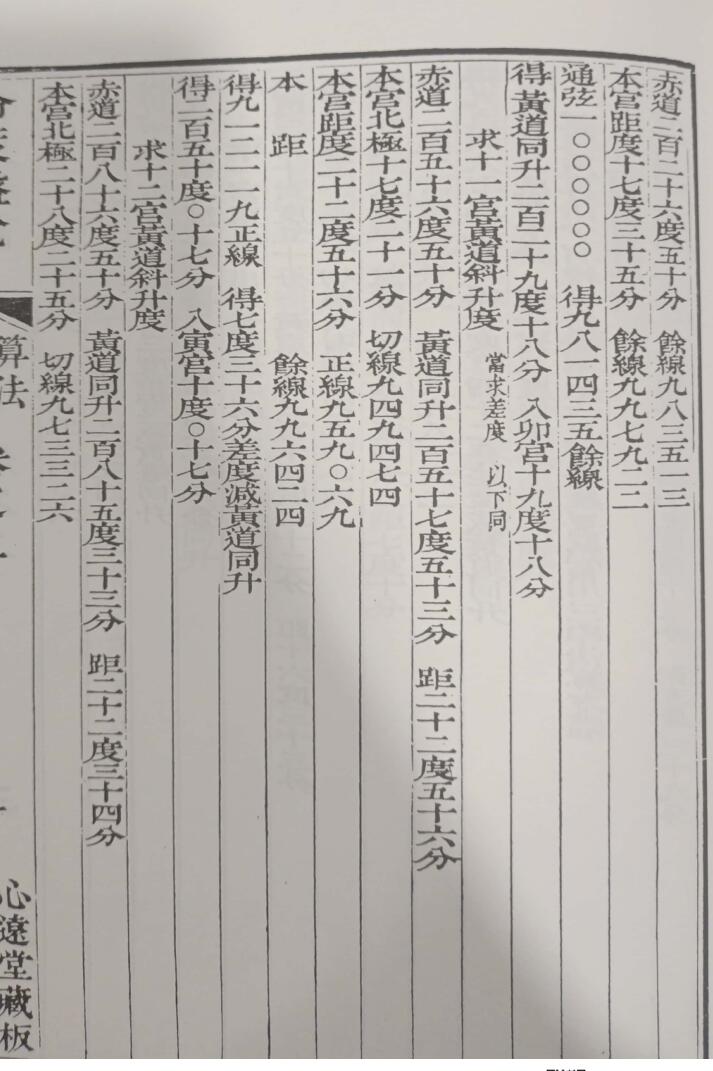 赤道二百二十六度五十分　餘線九八三五一三
本宮距度十七度三十五分　餘線九九七九二二
通弦一○○○○○○　得九八一四三五餘線
得黃道同升二百二十九度十八分　入卯宮十九度十八分
求十一宮黃道斜升度　當求差度　以下同
赤道二百五十六度五十分　黃道同升二百五十七度五十三分　距二十二度五十六分
本宮北極十七度二十一分　切線九四九四七四
本宮距度二十二度五十六分　正線九五九○六九
本　距　餘線九九六四二四
得九一二一一九正線　得七度三十六分差度減黃道同升
得二百五十度○十七分　入寅宮十度○十七分
求十二宮黃道斜升度
赤道二百八十六度五十分　黃道同升二百八十五度三十三分　距二十二度三十四分
本宮北極二十八度二十五分　切線九七三三二六
算法
心遠堂藏板